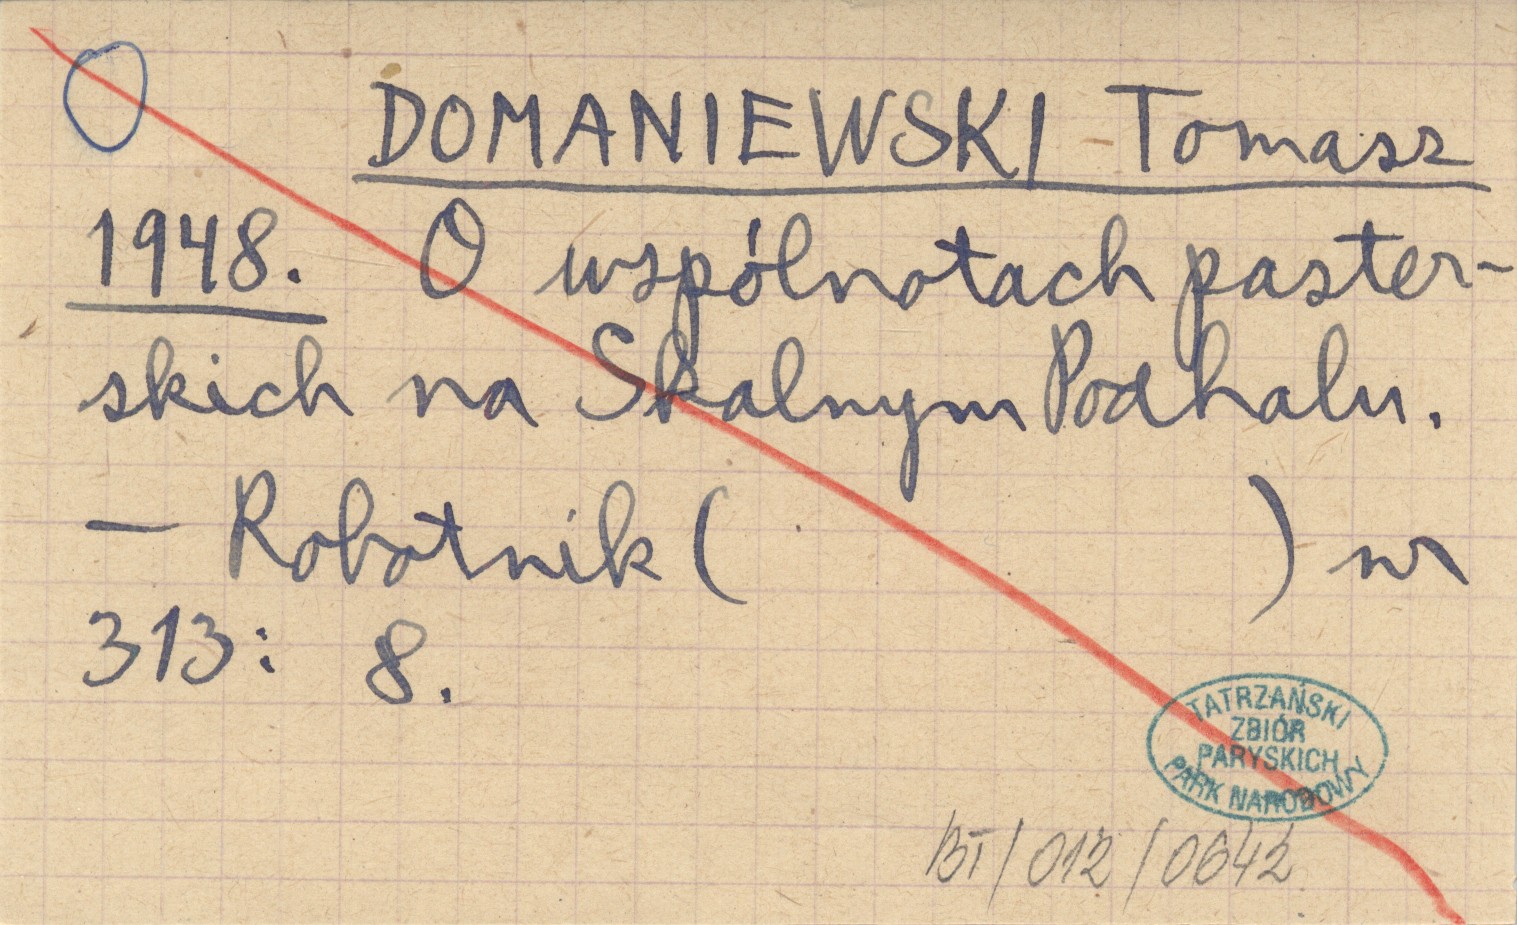 DOMANIEWSKI Tomasz
1948. O wspólnotach paster-
skich na Skalnym Podhalu.
— Robotnik ( ) nr
313: 8.
TATRZAŃSKI
ZBIÓR
PARYSKICH
PARK NARODOWY
BT/012/0642